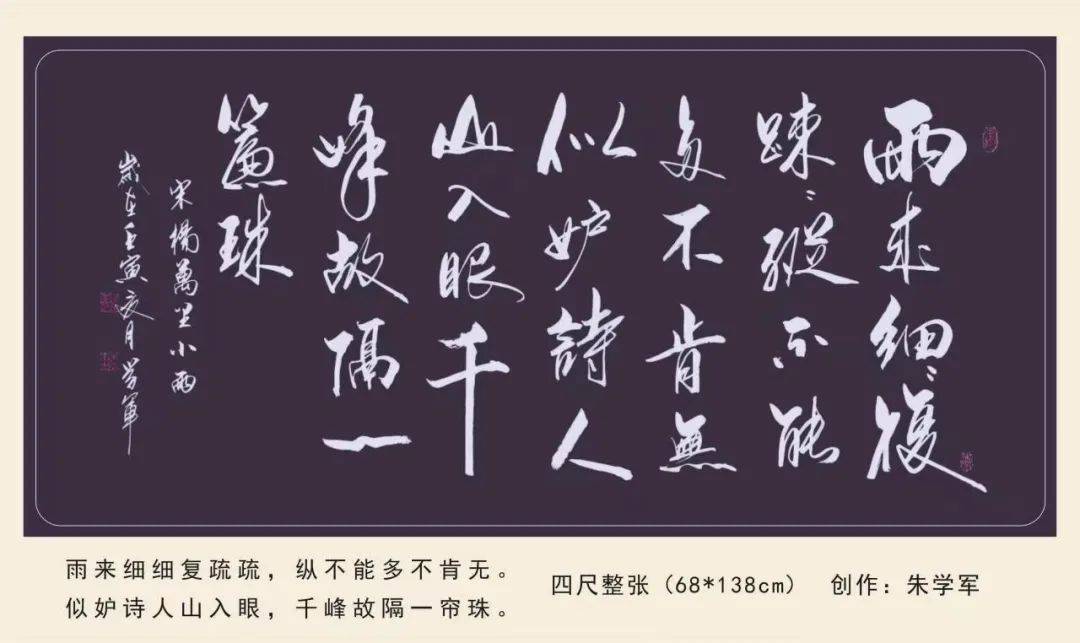 雨来細〻復
踈〻縱不能
多不肯無
似妒詩人
山入眼千
峰故隔一
簾珠
宋楊萬里小雨
歲在壬寅亥月学軍
雨来细细复疏疏，纵不能多不肯无。
似妒诗人山入眼，千峰故隔一帘珠。
四尺整张（68*138cm） 创作：朱学军